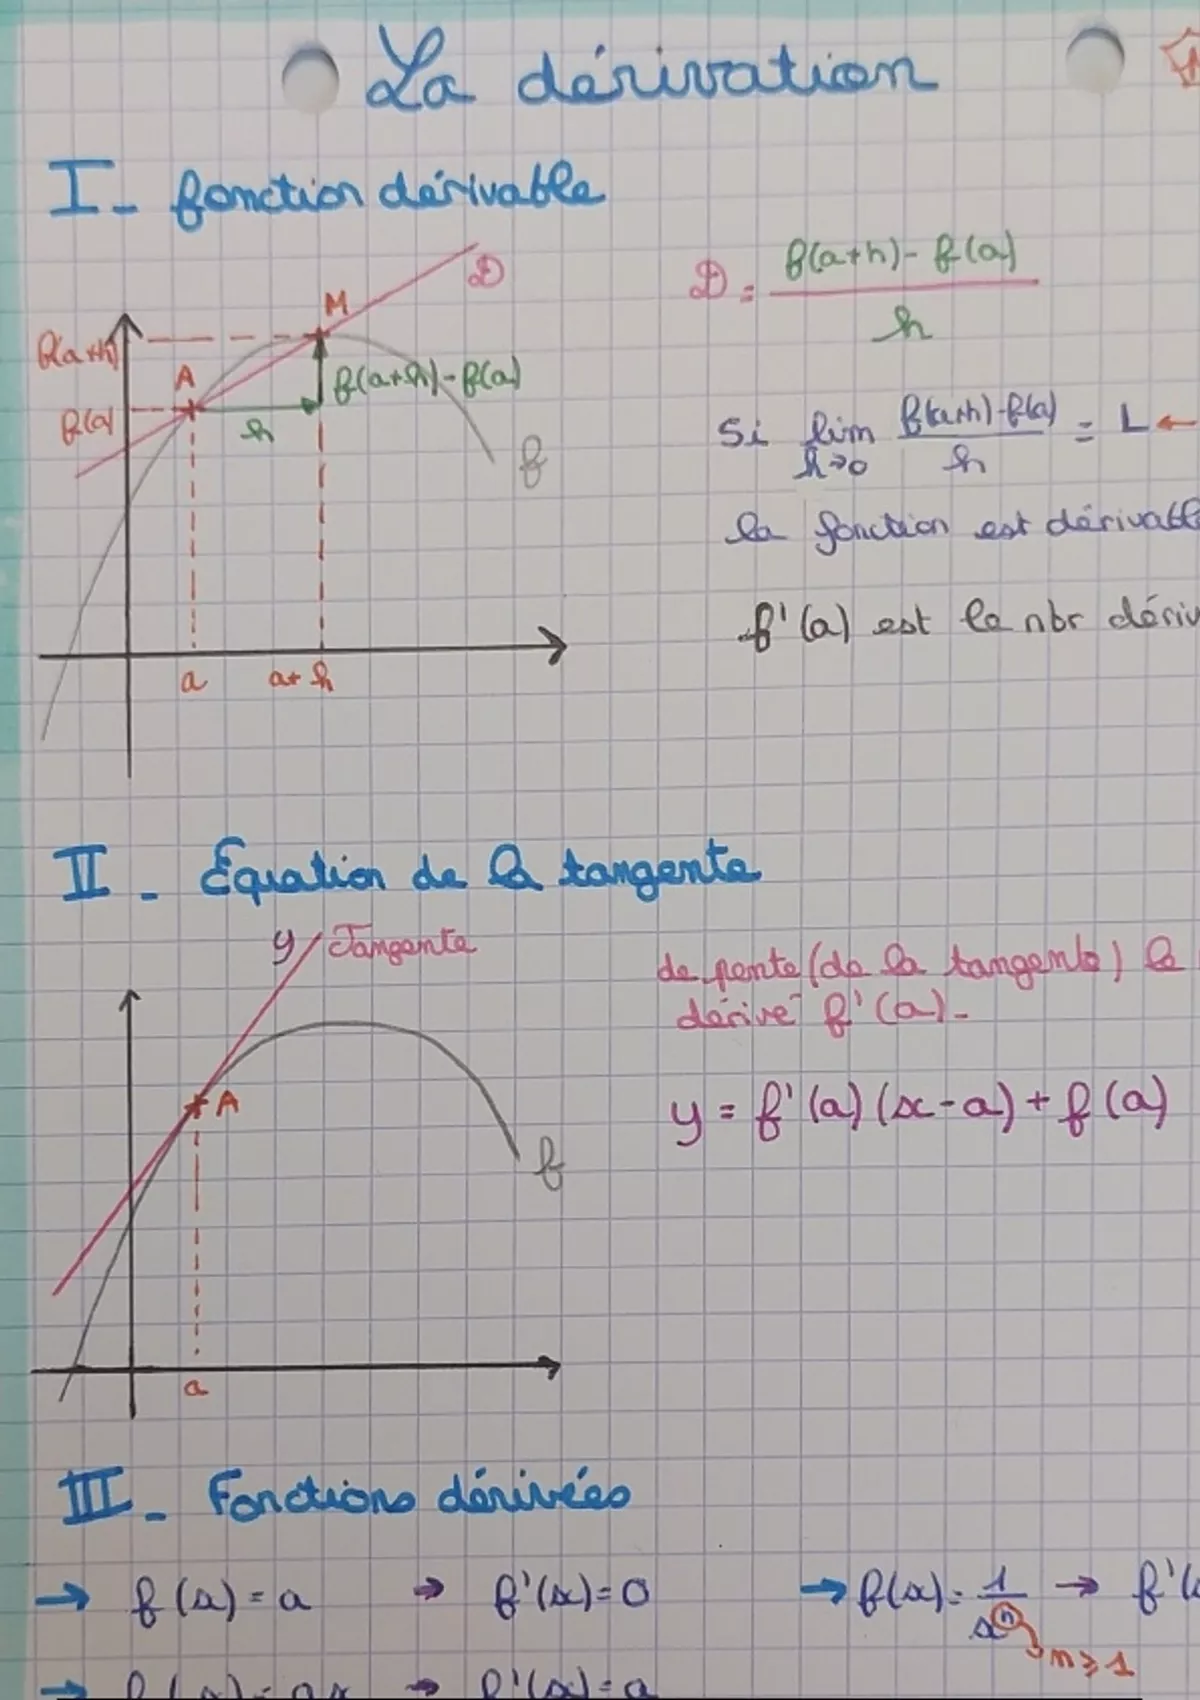 La dérivation
I - fonction dérivable
D
M
f(a+h)
A
f(a+h)-f(a)
f(a)
h
f
a
a+h
D = f(a+h)-f(a) / h
Si lim h→0 f(a+h)-f(a) / h = L ←
la fonction est dérivable
f'(a) est le nbr dériv
II - Équation de la tangente
y Tangente
A
f
a
de pente (de la tangente) le
dérivé f'(a)-
y = f'(a)(x-a)+f(a)
III - Fonctions dérivées
→ f(x)=a → f'(x)=0
→ f(x)=1/xⁿ → f'(
n⩾1
→ f(x)=ax → f'(x)=a